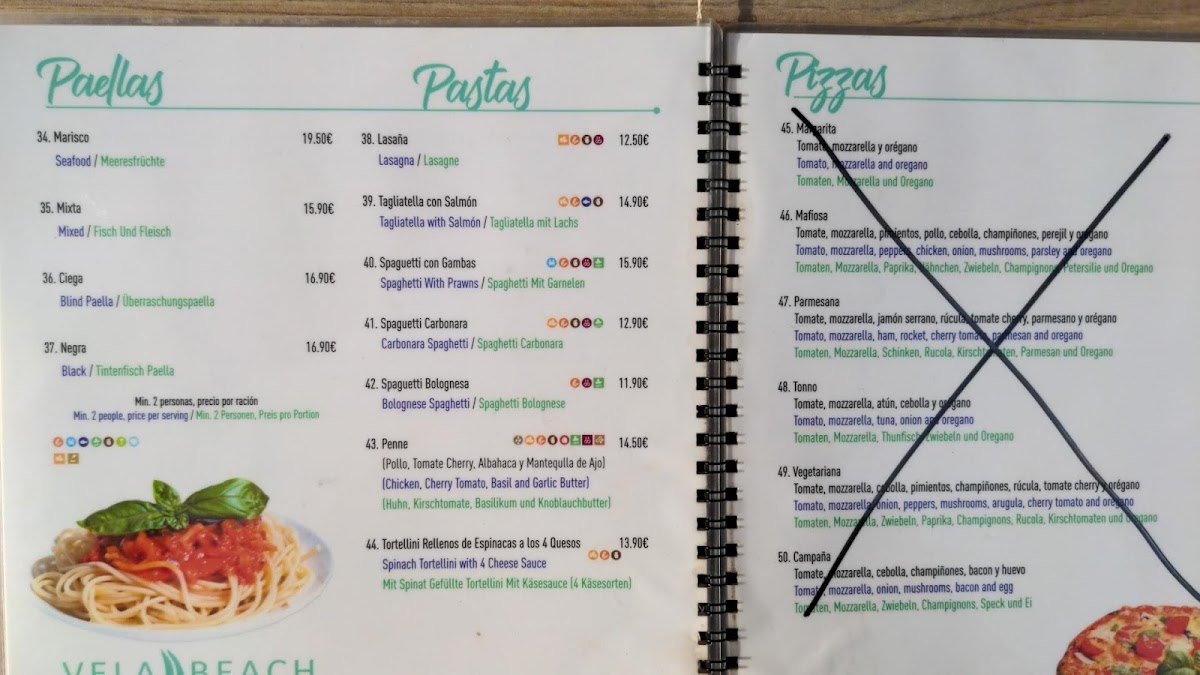 Paellas
34. Marisco 19.50€
Seafood / Meeresfrüchte
35. Mixta 15.90€
Mixed / Fisch Und Fleisch
36. Ciega 16.90€
Blind Paella / Überraschungspaella
37. Negra 16.90€
Black / Tintenfisch Paella
Min. 2 personas, precio por ración
Min. 2 people, price per serving / Min. 2 Personen, Preis pro Portion
VELA BEACH
Pastas
38. Lasaña 12.50€
Lasagna / Lasagne
39. Tagliatella con Salmón 14.90€
Tagliatella with Salmón / Tagliatella mit Lachs
40. Spaguetti con Gambas 15.90€
Spaghetti With Prawns / Spaghetti Mit Garnelen
41. Spaguetti Carbonara 12.90€
Carbonara Spaghetti / Spaghetti Carbonara
42. Spaguetti Bolognesa 11.90€
Bolognese Spaghetti / Spaghetti Bolognese
43. Penne 14.50€
(Pollo, Tomate Cherry, Albahaca y Mantequlla de Ajo)
(Chicken, Cherry Tomato, Basil and Garlic Butter)
(Huhn, Kirschtomate, Basilikum und Knoblauchbutter)
44. Tortellini Rellenos de Espinacas a los 4 Quesos 13.90€
Spinach Tortellini with 4 Cheese Sauce
Mit Spinat Gefüllte Tortellini Mit Käsesauce (4 Käsesorten)
Pizzas
45. Margarita
Tomate, mozzarella y orégano
Tomato, mozzarella and oregano
Tomaten, Mozzarella und Oregano
46. Mafiosa
Tomate, mozzarella, pimientos, pollo, cebolla, champiñones, perejil y orégano
Tomato, mozzarella, peppers, chicken, onion, mushrooms, parsley and oregano
Tomaten, Mozzarella, Paprika, Hähnchen, Zwiebeln, Champignons, Petersilie und Oregano
47. Parmesana
Tomate, mozzarella, jamón serrano, rúcula, tomate cherry, parmesano y orégano
Tomato, mozzarella, ham, rocket, cherry tomato, parmesan and oregano
Tomaten, Mozzarella, Schinken, Rucola, Kirschtomaten, Parmesan und Oregano
48. Tonno
Tomate, mozzarella, atún, cebolla y orégano
Tomato, mozzarella, tuna, onion and oregano
Tomaten, Mozzarella, Thunfisch, Zwiebeln und Oregano
49. Vegetariana
Tomate, mozzarella, cebolla, pimientos, champiñones, rúcula, tomate cherry y orégano
Tomato, mozzarella, onion, peppers, mushrooms, arugula, cherry tomato and oregano
Tomaten, Mozzarella, Zwiebeln, Paprika, Champignons, Rucola, Kirschtomaten und Oregano
50. Campaña
Tomate, mozzarella, cebolla, champiñones, bacon y huevo
Tomato, mozzarella, onion, mushrooms, bacon and egg
Tomaten, Mozzarella, Zwiebeln, Champignons, Speck und Ei